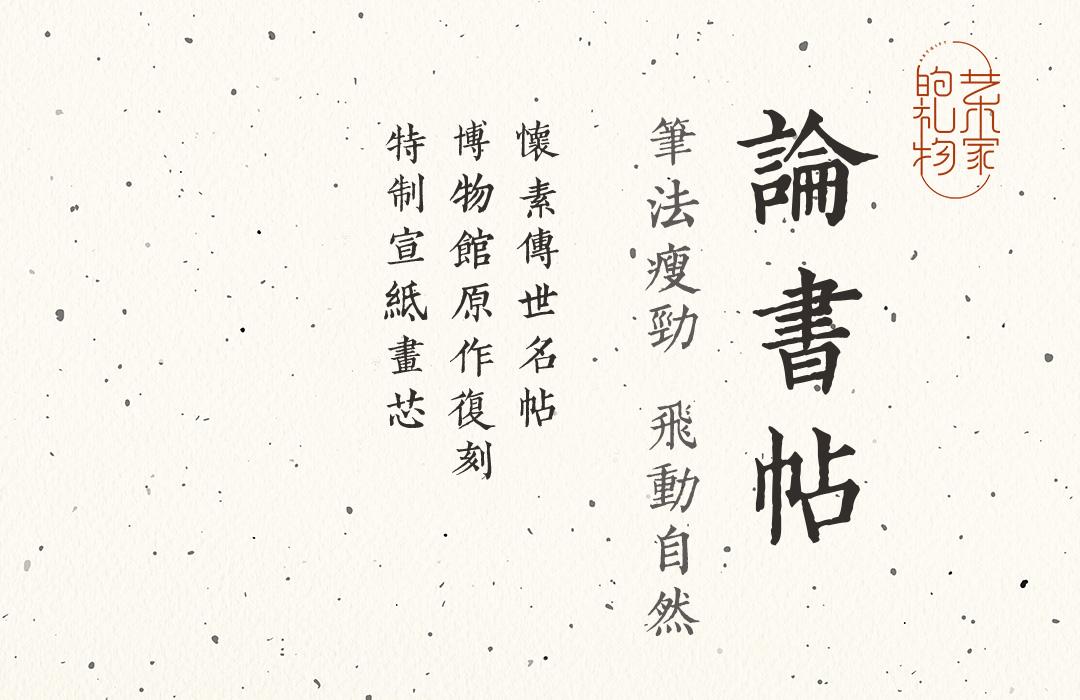 艺术家
的礼物
論書帖
筆法瘦勁 飛動自然
懷素傳世名帖
博物館原作復刻
特制宣紙畫芯